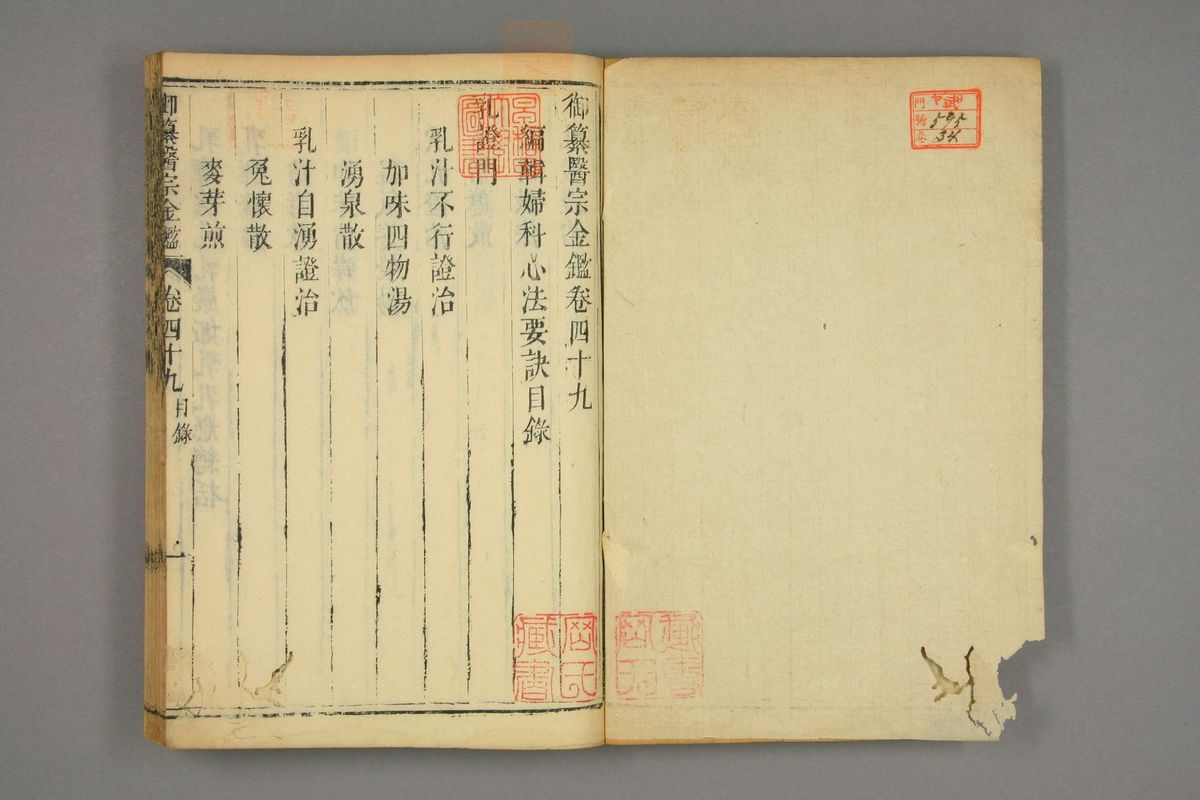 御纂醫宗金鑑卷四十九
編輯婦科心法要訣目錄
乳證門
乳汁不行證治
加味四物湯
湧泉散
乳汁自湧證治
免懷散
麥芽煎
御纂醫宗金鑑
卷四十九
目錄
一
岡氏
藏書
門
號
595